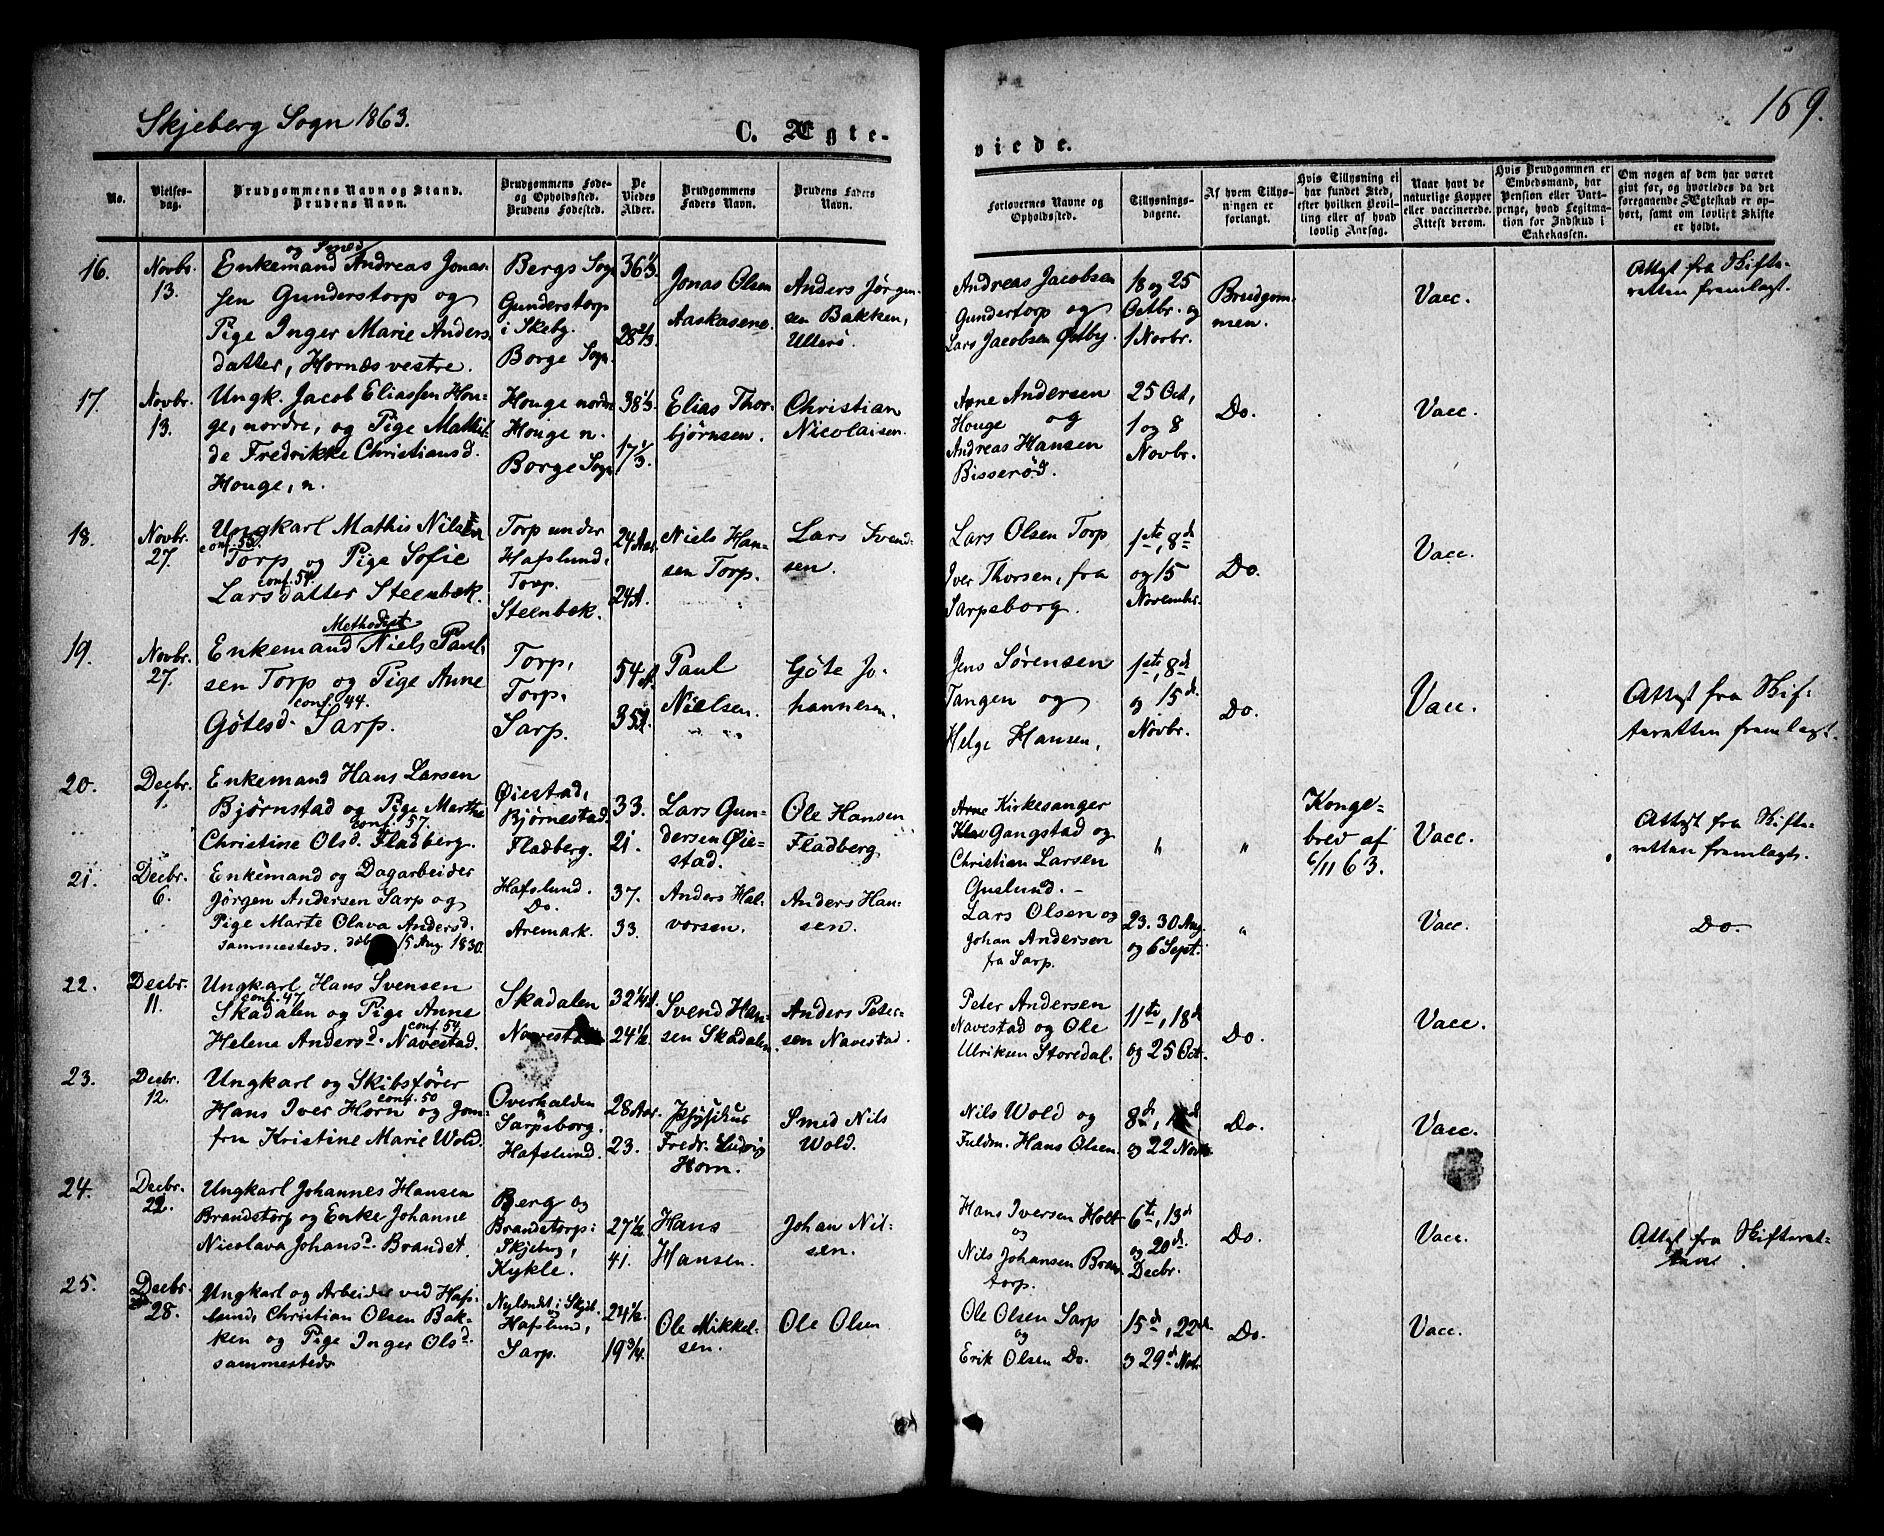 Skjeberg Sogn 1863.
169.
C. Ægte-
viede.
No.
Vielses-
dag.
Brudgommens Navn og Stand.
Brudens Navn.
Brudgommens Føde-
og Opholdsted.
Brudens Fødested.
De
Viedes
Alder.
Brudgommens
Faders Navn.
Brudens Faders
Navn.
Forlovernes Navne og
Opholdsted.
Tillysnings-
dagene.
Af hvem Tillys-
ningen er
forlangt.
Hvis Tillysning ei
har fundet Sted,
efter hvilken Bevil-
ling eller af hvad
lovlig Aarsag.
Naar havt de
naturlige Kopper
eller vaccinerede.
Attest derom.
Hvis Brudgommen er
Embedsmand, har
Pension eller Vart-
penge, hvad Legitma-
tion for Indskud i
Enkekassen.
Om nogen af dem har været
givt før, og hvorledes da det
foregaaende Ægteskab er op-
hørt, samt om lovligt Skifte
er holdt.
16.
Novbr.
13.
og Smed
Enkemand Andreas Jonas-
sen Gunderstorp og
Pige Inger Marie Anders
datter, Hornæs vestre.
Bergs Sogn
Gunderstorp
i Skebg.
Borge Sogn.
36 1/3
28 2/3
Jonas Olsen
Aaskasene.
Anders Jørgen-
sen Bakken,
Ullerø.
Andreas Jacobsen
Gundertorp og
Lars Jacobsen Østby.
18 og 25
Octbr. og
1 Novbr.
Brudgom-
men.
Vacc.
Attest fra Skifts-
retten fremlagt.
17.
Novbr.
13.
Ungk. Jacob Eliassen Hou-
ge, nordre, og Pige Mathil-
de Fredrikke Christiansd.
Houge, n.
Houge nordre
Houge n.
Borge Sogn
38 1/3.
17 1/3.
Elias Thor-
bjørnsen.
Christian
Nicolaisen.
Arne Andersen
Houge og
Andreas Hansen
Bisserød.
25 Oct,
1 og 8
Novbr.
Do.
Vacc.
18.
Novbr.
27.
Ungkarl Mathis Nilsen
conf. 55.
Torp og Pige Sofie
conf. 54.
Larsdatter Steenbæk.
Torp under
Hafslund,
Torp.
Steenbæk.
24 Aar.
24 A.
Niels Han-
sen Torp.
Lars Svend-
sen.
Lars Olsen Torp
Iver Thorsen, fra
Sarpsborg.
1ste, 8de
og 15
November.
Do.
Vacc.
19.
Novbr.
27.
Methodist
Enkemand Niels Paul-
sen Torp og Pige Anne
conf. 44.
Götesd. Sarp.
Torp,
Torp.
Sarp.
54 A.
35 A.
Paul
Nielsen.
Göte Jo-
hannesen.
Jens Sørensen
Tangen og
Helge Hansen,
1ste, 8de
og 15de
Novbr.
Do.
Vacc.
Attest fra Skif-
teretten fremlagt.
20.
Decbr.
1.
Enkemand Hans Larsen
Bjørnstad og Pige Marthe
conf. 57.
Christine Olsd. Fladberg.
Øiestad,
Bjørnestad.
Fladberg.
33.
21.
Lars Gun-
dersen Øie-
stad.
Ole Hansen
Fladberg
Arne Kirkesanger
Gangstad og
Christian Larsen
Guslund. –
"
"
Konge-
brev af
6/11 63.
Vacc.
Attest fra Skifts-
retten fremlagt.
21.
Decbr.
6.
Enkemand og Dagarbeider
Jørgen Andersen Sarp og
Pige Marte Olava Andersd.
sammesteds. døbt 15 Aug. 1830.
Hafslund.
Do.
Aremark.
37.
33.
Anders Hal-
vorsen.
Anders Han-
sen.
Lars Olsen og
Johan Andersen
fra Sarp.
23. 30 Aug.
og 6 Sept.
"
Vacc.
Do.
22.
Decbr.
11.
Ungkarl Hans Svensen
conf. 47
Skadalen og Pige Anne
conf. 54.
Helena Andersd. Navestad.
Skadalen
Navestad
32 1/4 A.
24 1/2
Svend Han-
sen Skadalen
Anders Peter-
sen Navestad.
Peter Andersen
Navestad og Ole
Ulriksen Storedal.
11te, 18de
og 25 Oct.
Do.
Vacc.
23.
Decbr.
12.
Ungkarl og Skibsfører
conf. 50
Hans Iver Horn og Jom-
fru Kristine Marie Wold.
Overhalden
Sarpsborg.
Hafslund.
28 Aar.
23.
Physikus
Fredr. Ludvig
Horn.
Smed Nils
Wold.
Nils Wold og
Fuldm. Hans Olsen
8de,
og 22 Nov.
Do.
Vacc.
24.
Decbr.
22.
Ungkarl Johannes Hansen
Brandstorp og Enke Johanne
Nicolava Johansd. Brandst.
Berg og
Brandstorp i
Skjeberg,
Kykle.
27 1/2
41.
Hans
Hansen.
Johan Nil-
sen.
Hans Iversen Holt
og
Nils Johansen Brans-
torp.
6te, 13de
og 20de
Decbr.
Do.
Vacc.
Attest fra Skifteret-
ten.
25.
Decbr.
28.
Ungkarl og Arbeider ved Haf-
lund, Christian Olsen Bak-
ken og Pige Inger Olsd.
sammesteds
Nylandet i Skjeb.
Hafslund,
Sarp.
24 1/2.
19 3/4.
Ole Mikkel-
sen.
Ole Olsen
Ole Olsen Sarp
og
Erik Olsen Do.
15de, 22de
og 29de Nov.
Do.
Vacc.